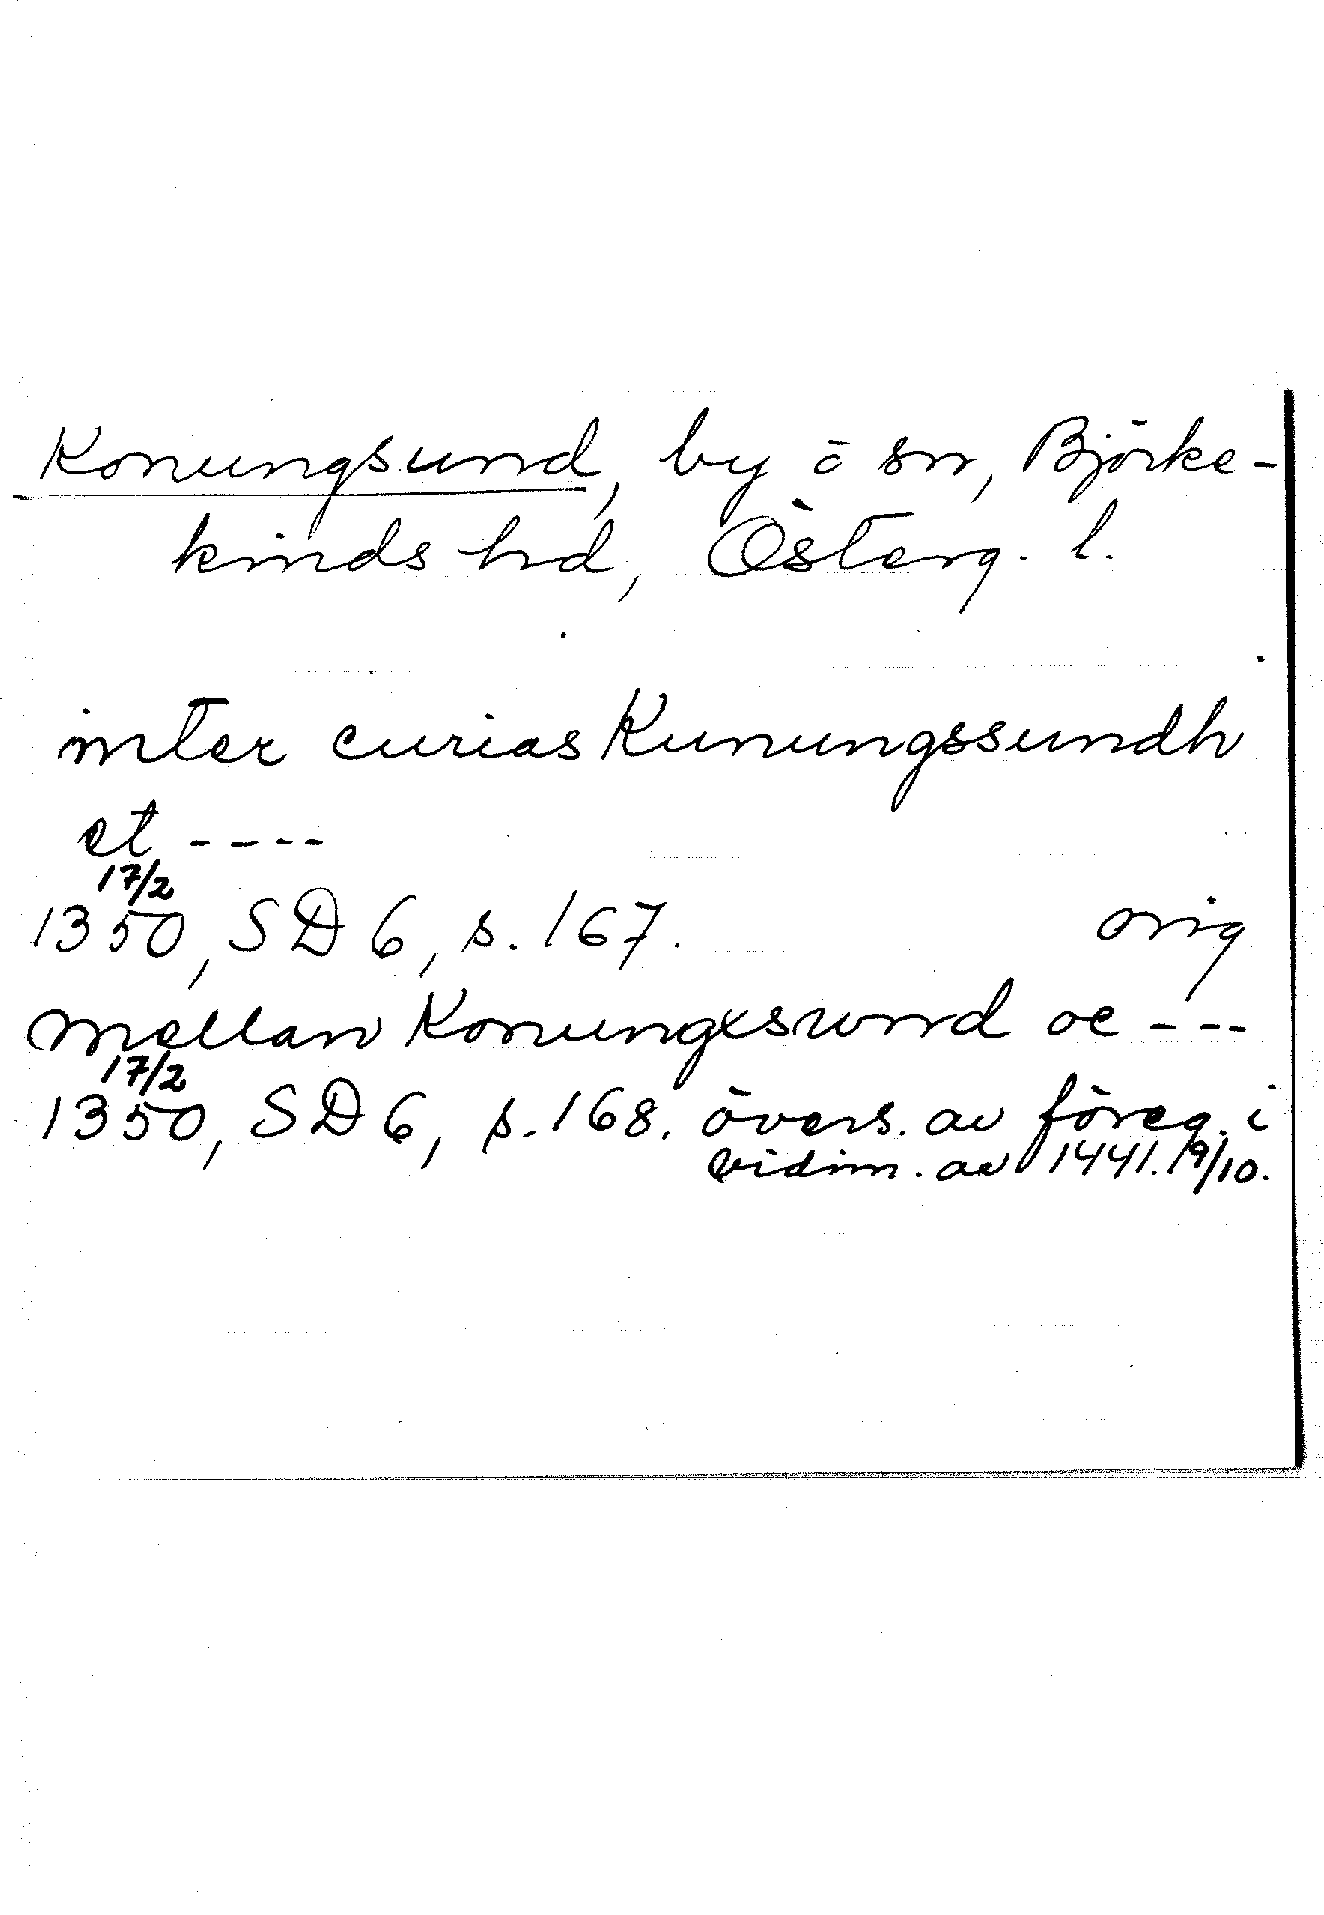 Konungsund, by o sn, Björke-
kinds hd, Österg. l.
inter curias Kunungssundh
et ----
17/2
1350, SD 6, s. 167. orig
mellan Konungxswnd oc ---
17/2
1350, SD 6, s. 168. övers. av föreg. i
vidim. av 1441. 19/10.